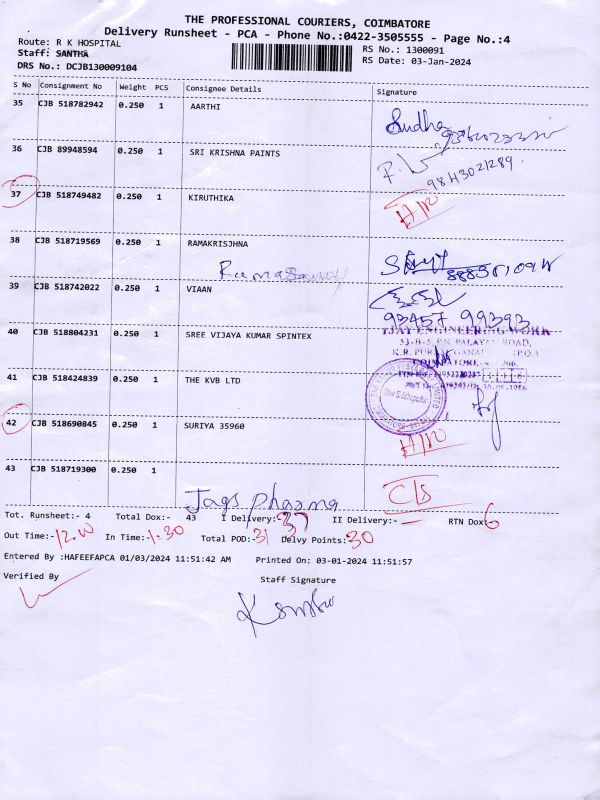 THE PROFESSIONAL COURIERS, COIMBATORE
Delivery Runsheet - PCA - Phone No.:0422-3505555 - Page No.:4
Route: R K HOSPITAL
RS No.: 1300091
Staff: SANTHA
RS Date: 03-Jan-2024
DRS No.: DCJB130009104
S No Consignment No Weight PCS Consignee Details Signature
35 CJB 518782942 0.250 1 AARTHI
Sudha
36 CJB 89948594 0.250 1 SRI KRISHNA PAINTS
9843021289
37 CJB 518749482 0.250 1 KIRUTHIKA
38 CJB 518719569 0.250 1 RAMAKRISJHNA
39 CJB 518742022 0.250 1 VIAAN
93457 99393
40 CJB 518804231 0.250 1 SREE VIJAYA KUMAR SPINTEX
TJAY ENGINEERING WORK
53-B-5, P.N. PALAYAM ROAD,
41 CJB 518424839 0.250 1 THE KVB LTD
42 CJB 518690845 0.250 1 SURIYA 35960
43 CJB 518719300 0.250 1
Jags Pharma
C/s
Tot. Runsheet:- 4 Total Dox:- 43 I Delivery:- 37 II Delivery:- — RTN Dox:- 6
Out Time:- 12.00 In Time:- 1.30 Total POD:- 31 Delvy Points: 30
Entered By :HAFEEFAPCA 01/03/2024 11:51:42 AM Printed On: 03-01-2024 11:51:57
Verified By
Staff Signature